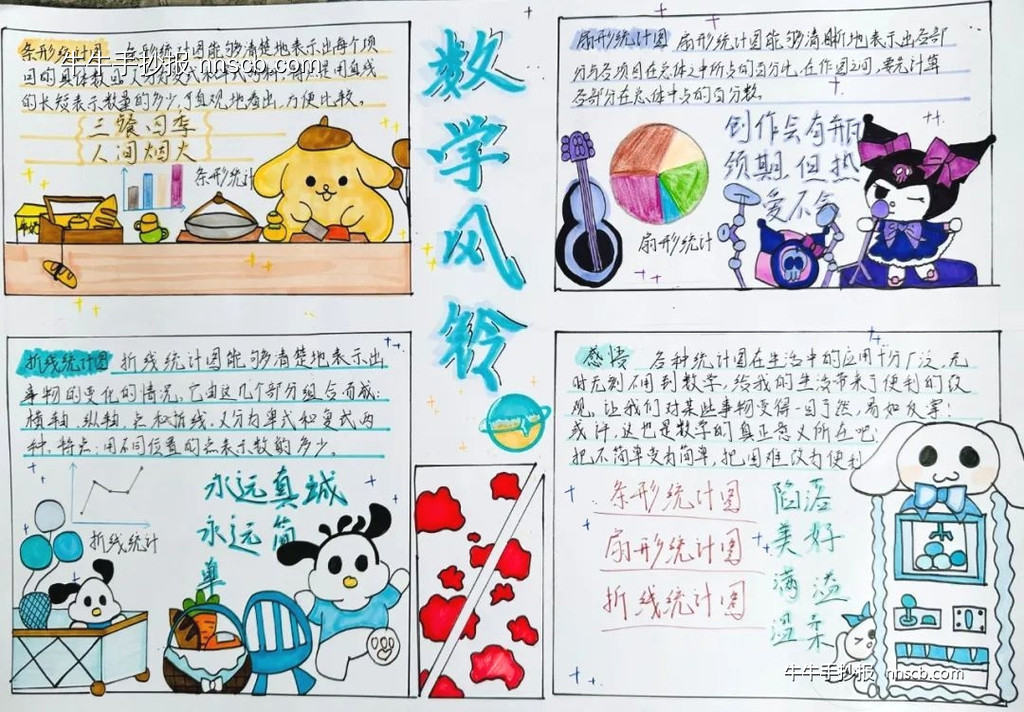 条形统计图 条形统计图能够清楚地表示出每个项
目的具体数
的长短表示数量的多少,可直观地看出,方便比较。
三餐四季
人间烟火
条形统计
牛牛手抄报 nhscb.com
nhscb.com
数学风铃
扇形统计图 扇形统计图能够清晰地表示出各部
分与各项目在总体之中所占的百分比,在作图之间,要先计算
各部分在总体中占的百分数。
创作会有瓶
颈期 但热
爱不会
扇形统计
折线统计图 折线统计图能够清楚地表示出
事物的变化的情况,它由这几个部分组合而成:
横轴、纵轴、点和折线,又分为单式和复式两
种,特点:用不同位置的点表示数的多少。
永远真诚
永远简
单
折线统计
感悟 各种统计图在生活中的应用十分广泛,无
时无刻不用到数学,给我的生活带来了便利的改
观,让我们对某些事物变得一目了然,易如反掌!
或许,这也是数学的真正意义所在吧:
把不简单变为简单,把困难改为便利
条形统计图
扇形统计图
折线统计图
陷落
美好
满溢
温柔
牛牛手抄报 nhscb.com